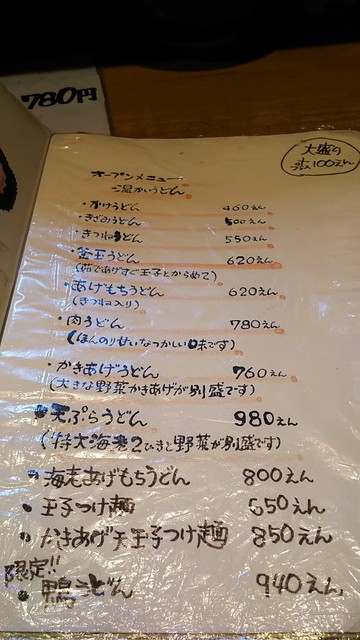 780円
大盛り
プラス100えん
オープンメニュー
温かいうどん
・かけうどん 460えん
・きざみうどん 500えん
・きつねうどん 550えん
・釜玉うどん 620えん
(茹であげすぐ玉子とからめて)
・あげもちうどん 620えん
(きつね入り)
・肉うどん 780えん
(ほんのりせいなつかしい味です)
・かきあげうどん 760えん
(大きな野菜かきあげが別盛です)
・天ぷらうどん 980えん
(特大海老2ひきと野菜が別盛です)
・海老あげもちうどん 800えん
・玉子つけ麺 650えん
・かきあげ天玉子つけ麺 850えん
限定!!
・鴨うどん 940えん